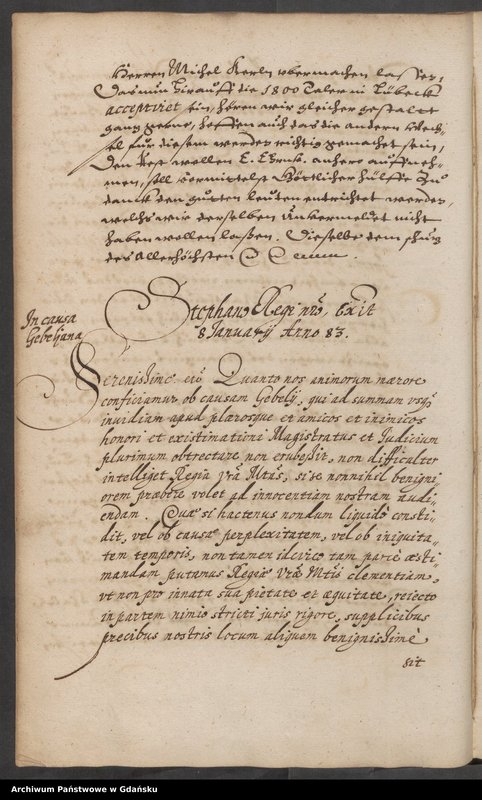 Herren Michel Kerln ubermachen lasser,
Das nun hirauff die 1800 Taler in Lübeck
acceptiret sein, hören wir gleicher gestaldt
gantz gerne, hoffen auch das die andern Wech,
sel fur diesem werden richtig gemachet sein,
Den Rest wollen E. Ehrnb. anhero auffneh,
men, soll vermittelst Göttlicher hülffe zu
danck den gutten leuten entrichtet werden,
welchs wir derselben Unvermeldet nicht
haben wollen laßen. Dieselbe dem schutz
des Allerhöchsten
Stephano Regi nrō, Exit
8 Januarij Anno 83.
In causa
Gebeliana
Serenissime etc Quanto nos animorum mærore
conficiamur ob causam Gebelij, qui ad summam usqz
invidiam apud plærosque et amicos et inimicos
honori et existimationi Magistratus et Judicium
plurimum obtrectare non erubessit, non difficulter
intelliget Regia Vrā Mtās, si se nonnihil benigni
orem præbere volet ad innocentiam nostram audi,
endam. Quæ si hactenus nondum liquidò consti,
dit, vel ob causæ perplexitatem, vel ob iniquita,
tem temporis, non tamen idcirco tam parcè æsti,
mandam putamus Regiæ Vrā Mtis clementiam,
ut non pro innata sua pietate et æquitate, reiecto
in partem nimio stricti juris rigore, supplicibus
precibus nostris locum aliquem benignissimè
sit
Archiwum Państwowe w Gdańsku